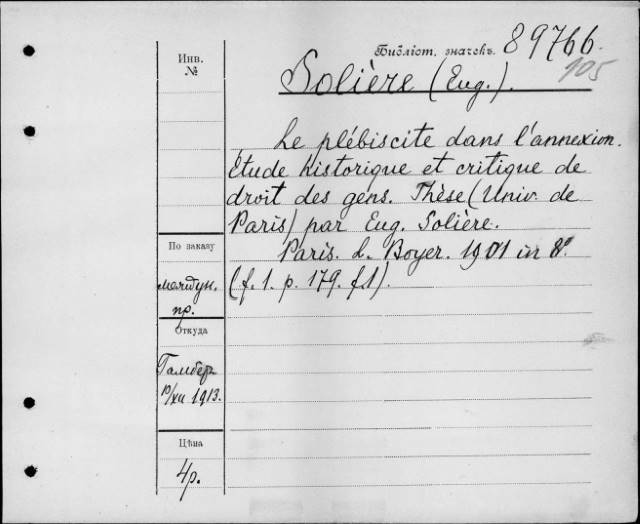 Библіот. значекъ. 89766.
105
Инв.
№
Solière (Eug.).
Le plébiscite dans l'annexion.
étude historique et critique de
droit des gens. Thèse (Univ. de
Paris) par Eug. Solière.
Paris. L. Boyer. 1901 in 8º
(f. 1. p. 179. f.1).
По заказу
междун.
пр.
Откуда
Гамбер
10/XII 1913.
Цѣна
4р.